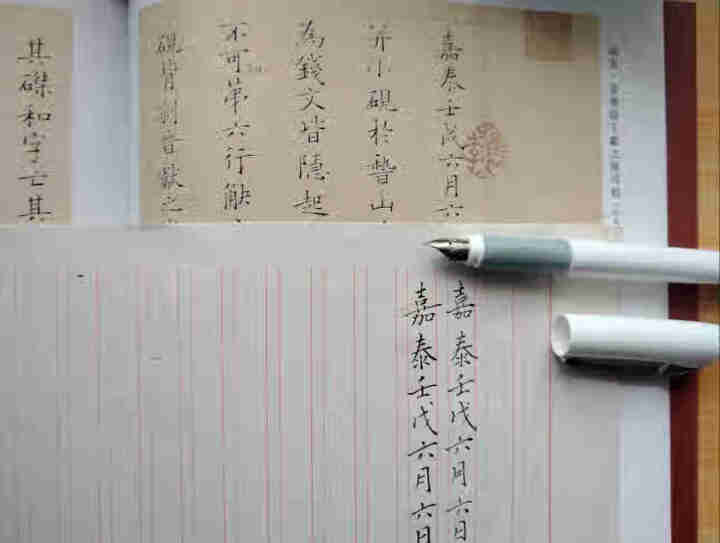 嘉泰壬戌六月六
并小硯於稽山
為錢文皆隱起
不可第六行缺
硯背刻晉獻之
其磔和字亡其
嘉泰壬戌六月六日
嘉泰壬戌六月六日